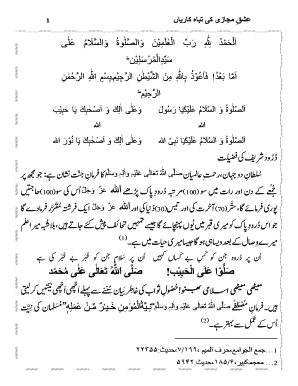 عشق مجازی کی تباہ کاریاں 1
اَلْحَمْدُ لِلّٰہِ رَبِّ الْعٰلَمِیْنَ وَالصَّلٰوۃُ وَالسَّلَامُ عَلٰی
سَیِّدِ الْمُرْسَلِیْنَ ط
اَمَّا بَعْدُ! فَاَعُوْذُ بِاللّٰہِ مِنَ الشَّیْطٰنِ الرَّجِیْمِ بِسْمِ اللّٰہِ الرَّحْمٰنِ
الرَّحِیْمِ ط
اَلصَّلٰوۃُ وَ السَّلَامُ عَلَیْکَ یَا رَسُولَ اللہ وَعَلٰی اٰلِکَ وَ اَصْحٰبِکَ یَا حَبِیْبَ
اللہ
اَلصَّلٰوۃُ وَ السَّلَامُ عَلَیْکَ یَا نَبِیَّ اللہ وَعَلٰی اٰلِکَ وَ اَصْحٰبِکَ یَا نُوْرَ اللہ
دُرُود شریف کی فضیلت
سلطانِ دو جہان، رحمتِ عالمیان صَلَّی اللہُ تَعَالٰی عَلَیْہِ وَاٰلِہٖ وَسَلَّم کا فرمانِ جنّت نشان ہے: جو مجھ پر
جُمُعے کے دن اور رات میں سو (100) مرتبہ درودِ پاک پڑھے اللہ عَزَّوَجَلَّ اُس کی سو (100) حاجتیں
پوری فرمائے گا، ستّر (70) آخرت کی اور تیس (30) دُنیا کی اور اللہ عَزَّوَجَلَّ ایک فرشتہ مقرّر فرمادے گا
جو اس درودِ پاک کو میری قبر میں یوں پہنچائے گا جیسے تمہیں تحائف پیش کئے جاتے ہیں، بلاشبہ میرا علم
میرے وصال کے بعد ویسا ہی ہوگا جیسا میری حیات میں ہے۔ (1)
اُن پر درود جن کو حَسِ بے کَسَاں کہیں اُن پر سلام جن کو خبر بے خبر کی ہے
صَلُّوْا عَلَی الْحَبِیْب! صَلَّی اللہُ تَعَالٰی عَلٰی مُحَمَّد
میٹھی میٹھی اسلامی بہنو! حُصُولِ ثواب کی خاطِر بیان سننے سے پہلے اچھی اچھی نیّتیں کر لیتی
ہیں۔ فرمانِ مصطفٰے صَلَّی اللہُ تَعَالٰی عَلَیْہِ وَاٰلِہٖ وَسَلَّم "نِیَّۃُ الْمُؤْمِنِ خَیْرٌ مِّنْ عَمَلِہٖ" مسلمان کی نیّت
اُس کے عمل سے بہتر ہے۔ (2)
1... جمع الجوامع، حرف المیم، ۷/۱۹۹، حدیث: ۲۲۳۵۵
2... معجم کبیر، ۶/۱۸۵، حدیث: ۵۹۴۲